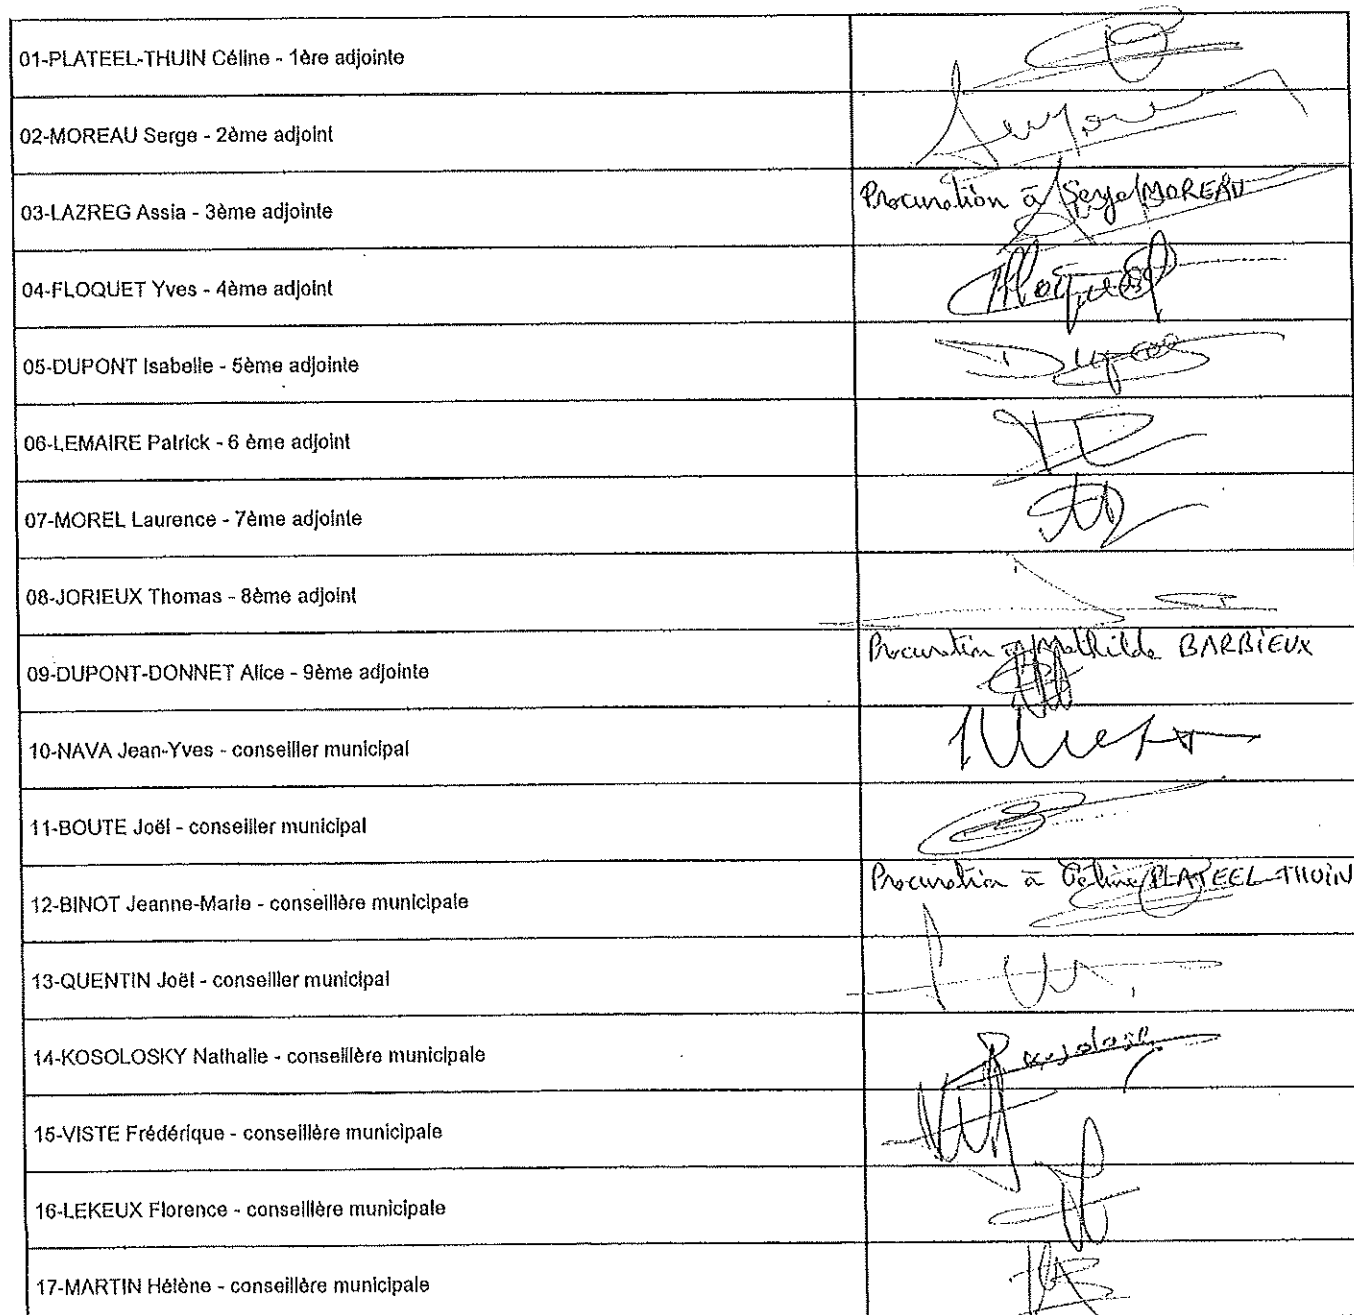 01-PLATEEL-THUIN Céline - 1ère adjointe
02-MOREAU Serge - 2ème adjoint
03-LAZREG Assia - 3ème adjointe
Procuration à Serge MOREAU
04-FLOQUET Yves - 4ème adjoint
Floquet
05-DUPONT Isabelle - 5ème adjointe
06-LEMAIRE Patrick - 6 ème adjoint
07-MOREL Laurence - 7ème adjointe
08-JORIEUX Thomas - 8ème adjoint
09-DUPONT-DONNET Alice - 9ème adjointe
Procuration à Mathilde BARBIEUX
10-NAVA Jean-Yves - conseiller municipal
11-BOUTE Joël - conseiller municipal
12-BINOT Jeanne-Marie - conseillère municipale
Procuration à Céline PLATEEL-THUIN
13-QUENTIN Joël - conseiller municipal
14-KOSOLOSKY Nathalie - conseillère municipale
15-VISTE Frédérique - conseillère municipale
16-LEKEUX Florence - conseillère municipale
17-MARTIN Hélène - conseillère municipale